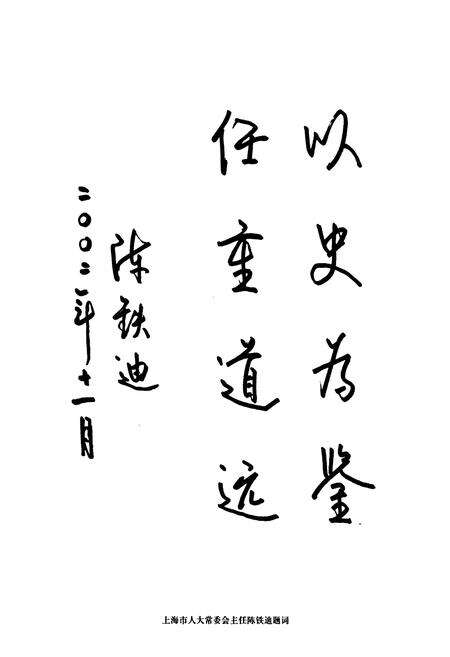 以史为鉴
任重道远
陈铁迪
二〇〇二年十一月
上海市人大常委会主任陈铁迪题词